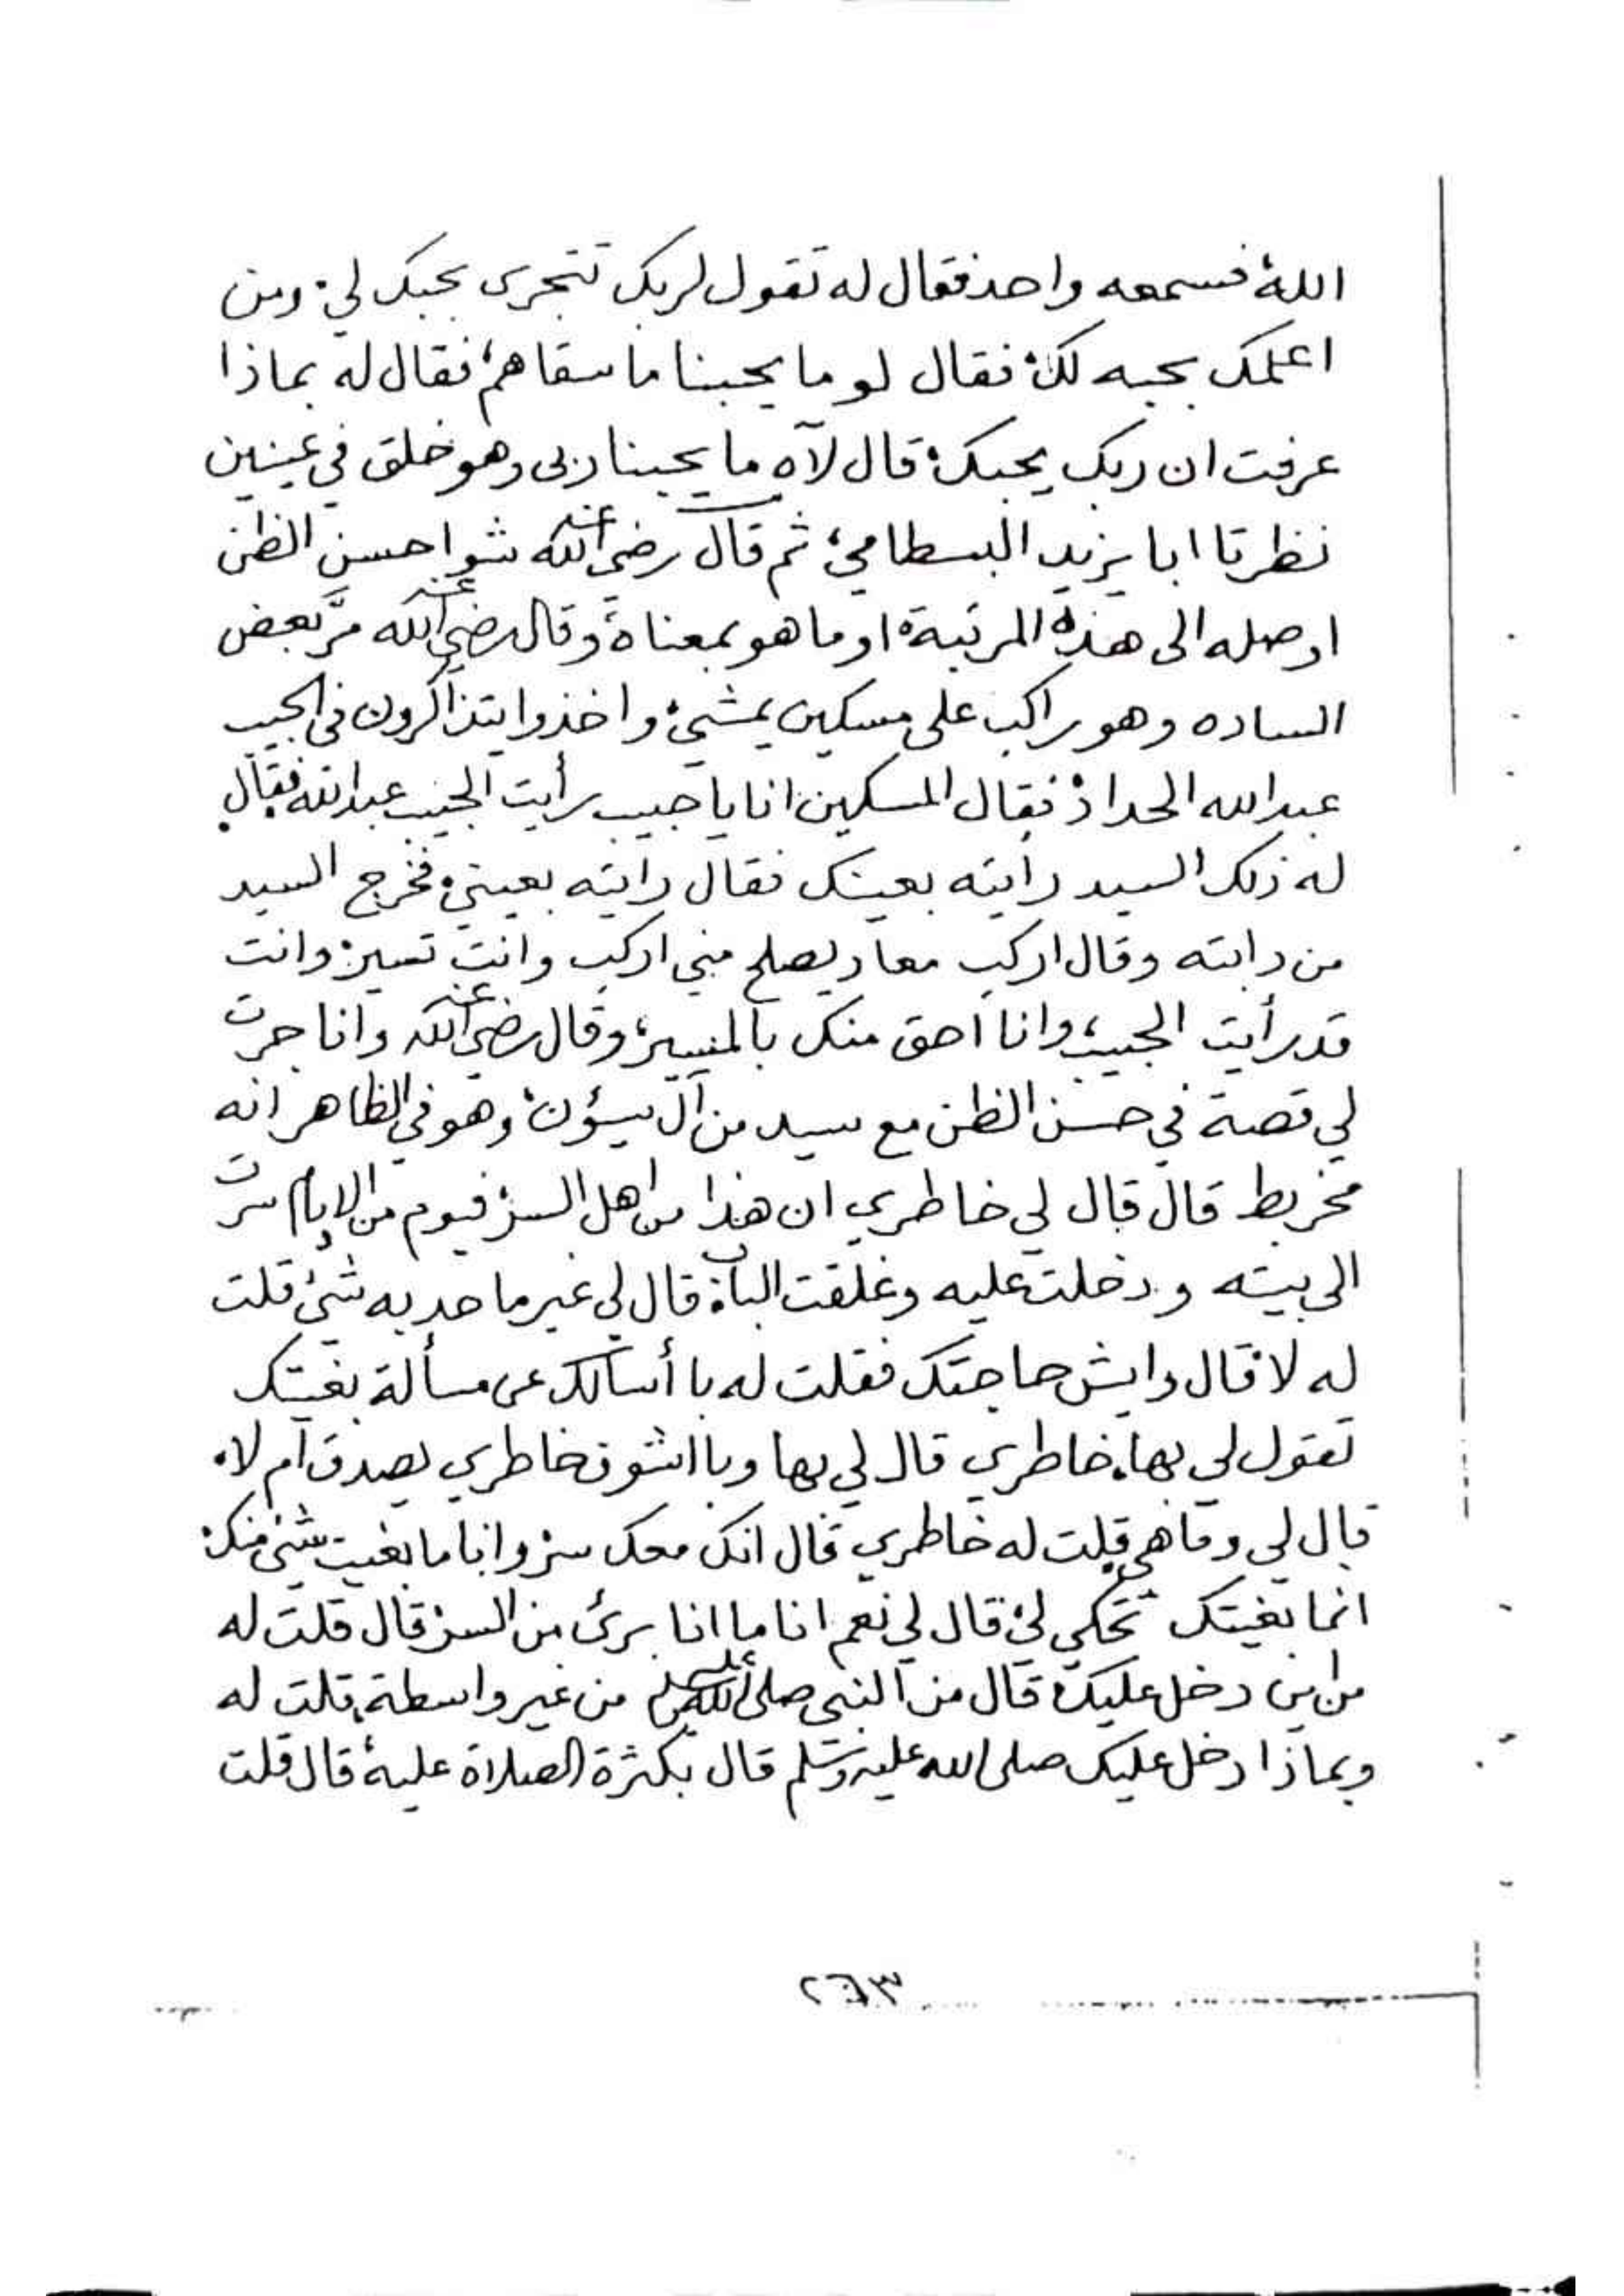 الله، فسمعه واحد فقال له تقول لربك تتجرى بحبك لي، ومن
اعلمك بحبه لك، فقال لو ما يحبنا ما سقاهم، فقال له بماذا
عرفت ان ربك يحبك، قال لآه ما يحبنا ربى وهو خلق في عينين
نظرتا ابا يزيد البسطامي، ثم قال رضي الله عنه شوا حسن الظن
اوصله الى هذه المرتبة، اوما هو بمعناه، وقال رضي الله عنه مرَّ بعض
الساده وهو راكب على مسكين يمشي، واخذوا يتذاكرون في الحبيب
عبدالله الحداد، فقال المسكين انا يا حبيب رأيت الحبيب عبدالله، فقال
له ذلك السيد رايته بعينك فقال رايته بعيني، فخرج السيد
من دابته وقال اركب معاد يصلح مني اركب وانت تسير، وانت
قد رأيت الحبيب، وانا احق منك بالمسير، وقال رضي الله عنه وانا جرت
لي قصة في حسن الظن مع سيد من آل بيسؤن، وهو في الظاهر انه
مخربط قال قال لي خاطري ان هذا من اهل السر، فيوم من الايام سرت
الى بيته ودخلت عليه وغلقت الباب، قال لي غير ما حد به شئ قلت
له لا، قال وايش حاجتك فقلت له با أسالك عن مسألة بغيتك
تقول لي بها، خاطري قال لي بها وبا اشوف خاطري يصدق ام لا،
قال لي وما هي، قلت له خاطري قال انك معك سر، وانا ما بغيت شئ منك،
انما بغيتك تحكي لي، قال لي نعم انا ما انا برئ من السر، قال قلت له
من اين دخل عليك، قال من النبي صلى الله عليه وسلم من غير واسطة، قلت له
وبماذا دخل عليك صلى الله عليه وسلم قال بكثرة الصلاة عليه، قال قلت